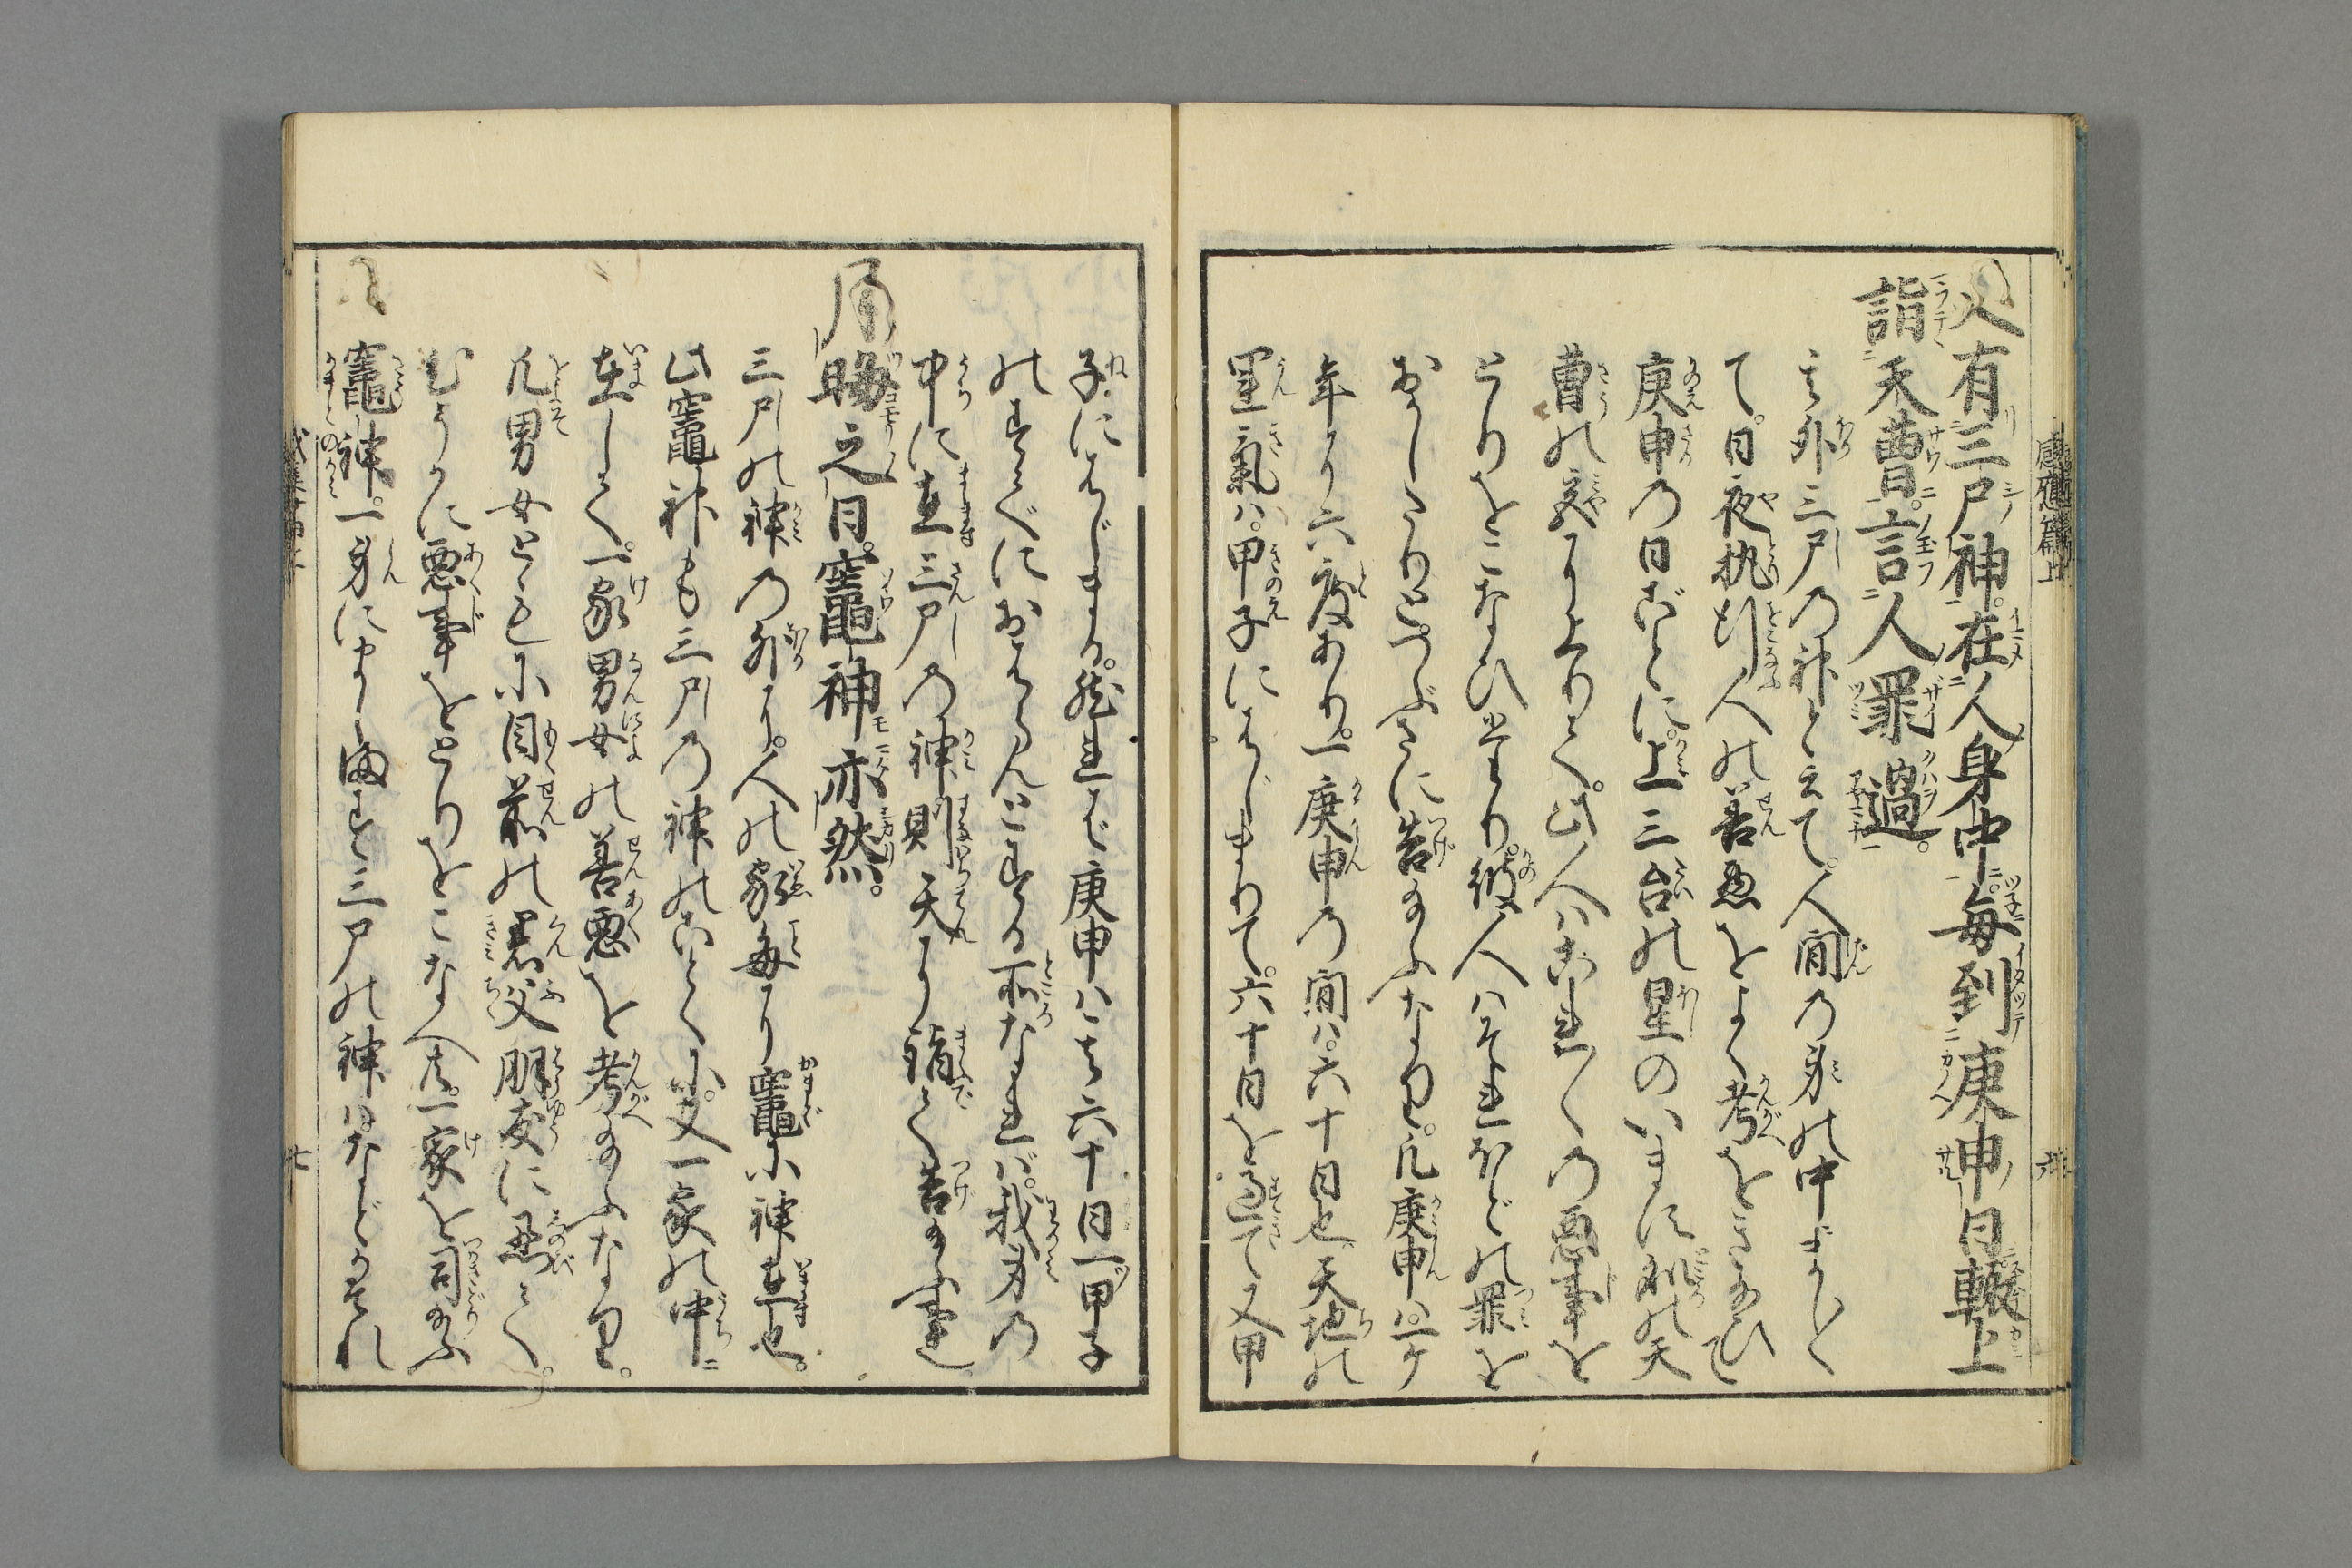 又有三尸神。在人身中。毎到庚申日。輙上
詣天曹。言人罪過。
其外三尸の神と云て。人間の身の中にましまし
て。日夜執行人の善悪をよく考をきたひて
庚申の日ごとに。上三台の星のいます所の天
曹の宮に上りて。此人はこれ〳〵の悪事を
とりをこなひ侍り。彼人はそれほどの罪を
おかしたりと。つぶさに告給ふなり。凡庚申は。一ケ
年に六度あり。一庚申の間は。六十日也。天地の
運気は。甲子にはじまりて。六十日を過て又甲
子にはじまる。然れば庚申は其六十日一甲子
のすでにおはらんとする所なれば。我身の
中に在三尸の神則天に詣て告給ふ事也
月晦之日。竈神亦然。
三尸の神の外に。人の家毎に竈に神在也。
此竈神も三尸の神のごとくに。又一家の中ニ
在して。一家男女の善悪を考給ふなり。
凡男女ともに目前の君父朋友に忍て。
ひそかに悪事をとりをこなへ共。一家を司給ふ
竈神。一身にまします三尸の神は。などかそれ
感應篇上
六
七